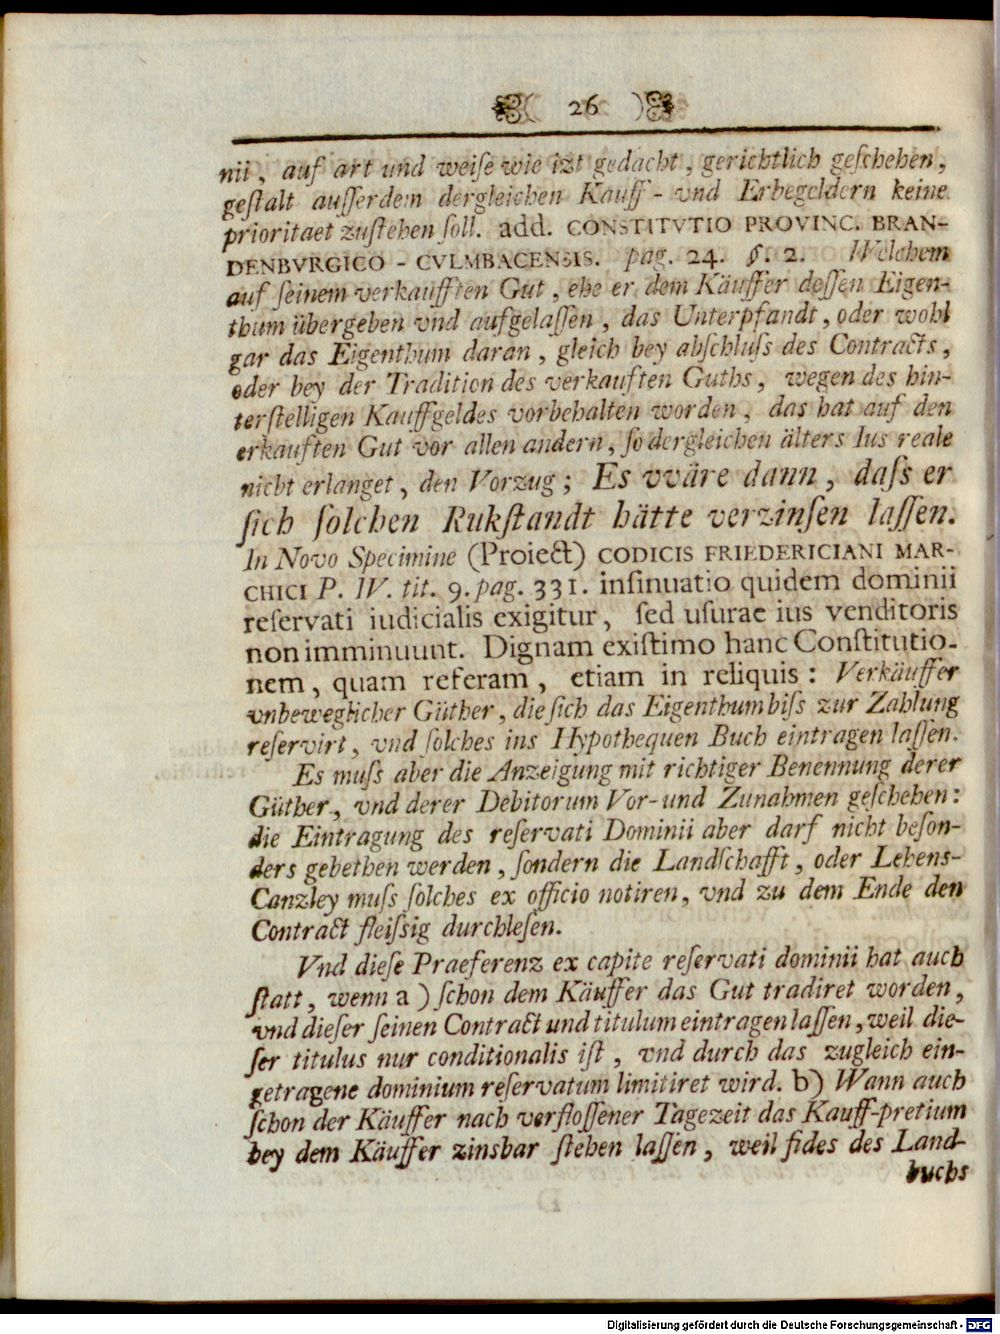 ( 26 )
nii, auf art und weiſe wie izt gedacht, gerichtlich geſchehen,
geſtalt auſſerdem dergleichen Kauff - vnd Erbegeldern keine
prioritaet zuſtehen ſoll. add. CONSTITVTIO PROVINC. BRAN-
DENBVRGICO - CVLMBACENSIS. pag. 24. §. 2. Welchem
auf ſeinem verkaufften Gut, ehe er dem Käuffer deſſen Eigen-
thum übergeben vnd aufgelaſſen, das Unterpfandt, oder wohl
gar das Eigenthum daran, gleich bey abſchluſs des Contracts,
oder bey der Tradition des verkauften Guths, wegen des hin-
terſtelligen Kauffgeldes vorbehalten worden, das hat auf den
erkauften Gut vor allen andern, ſo dergleichen älters Ius reale
nicht erlanget, den Vorzug; Es vväre dann, daſs er
ſich ſolchen Rukſtandt hätte verzinſen laſſen.
In Novo Specimine (Proiect) CODICIS FRIEDERICIANI MAR-
CHICI P. IV. tit. 9. pag. 331. inſinuatio quidem dominii
reſervati iudicialis exigitur, ſed uſurae ius venditoris
non imminuunt. Dignam exiſtimo hanc Conſtitutio-
nem, quam referam, etiam in reliquis: Verkäuffer
vnbeweglicher Güther, die ſich das Eigenthum biſs zur Zahlung
reſervirt, vnd ſolches ins Hypothequen Buch eintragen laſſen.
Es muſs aber die Anzeigung mit richtiger Benennung derer
Güther, vnd derer Debitorum Vor- und Zunahmen geſchehen:
die Eintragung des reſervati Dominii aber darf nicht beſon-
ders gebethen werden, ſondern die Landſchafft, oder Lehens-
Canzley muſs ſolches ex officio notiren, vnd zu dem Ende den
Contract fleiſsig durchleſen.
Vnd dieſe Praeferenz ex capite reſervati dominii hat auch
ſtatt, wenn a) ſchon dem Käuffer das Gut tradiret worden,
vnd dieſer ſeinen Contract und titulum eintragen laſſen, weil die-
ſer titulus nur conditionalis iſt, vnd durch das zugleich ein-
getragene dominium reſervatum limitiret wird. b) Wann auch
ſchon der Käuffer nach verfloſſener Tagezeit das Kauff-pretium
bey dem Käuffer zinsbar ſtehen laſſen, weil fides des Land-
buchs
Digitalisierung gefördert durch die Deutsche Forschungsgemeinschaft - DFG